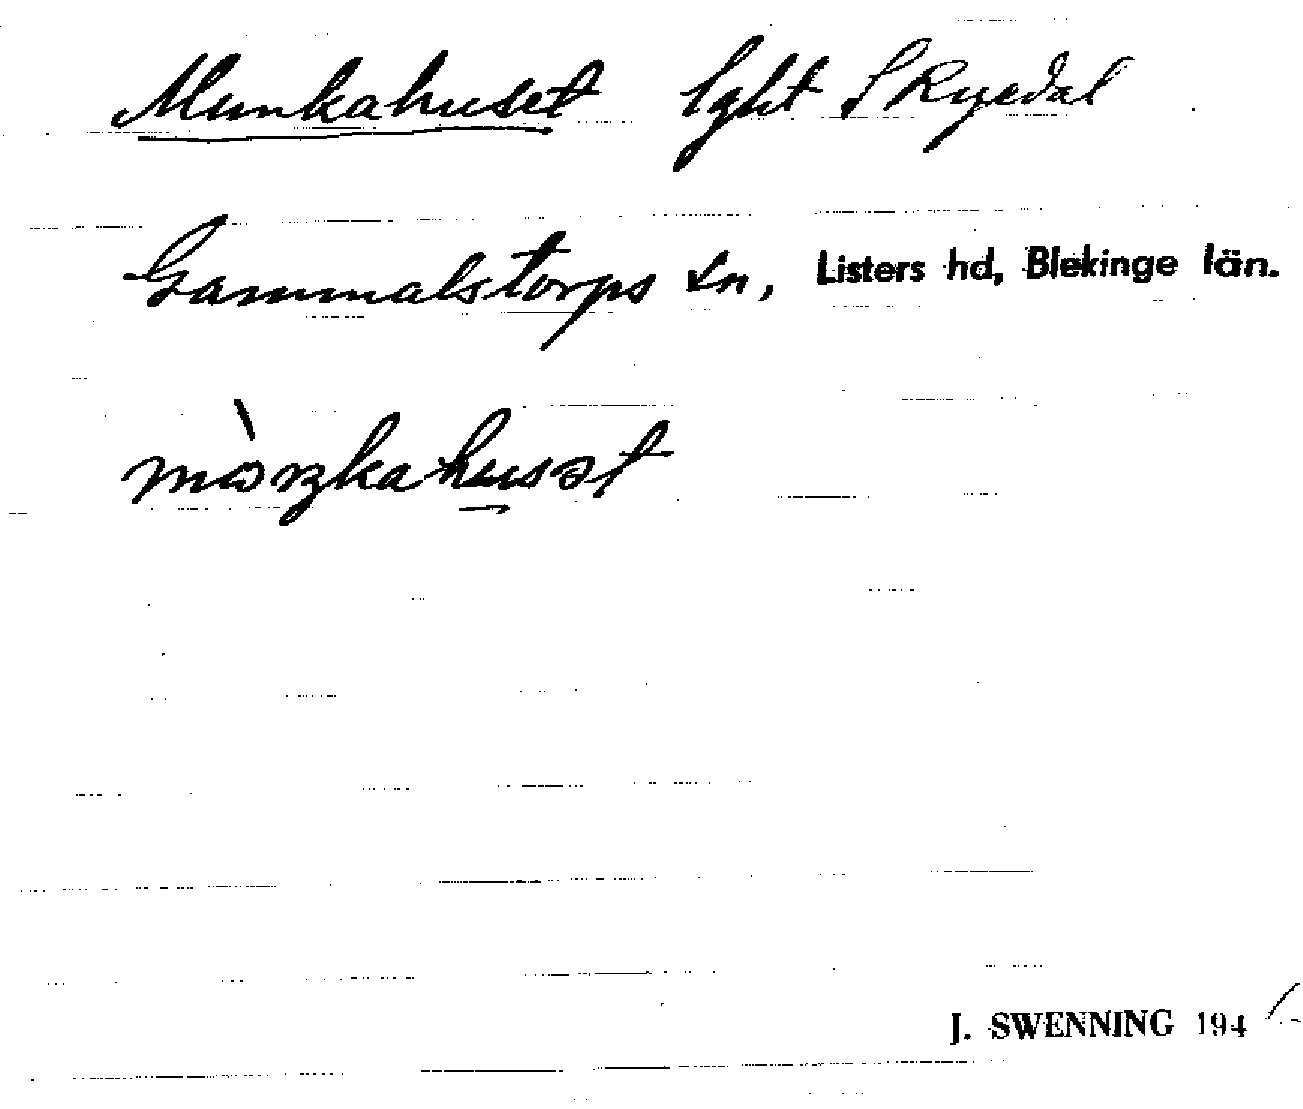 Munkahuset lght Skyedal
Gammalstorps sn, Listers hd, Blekinge län.
J. SWENNING 194